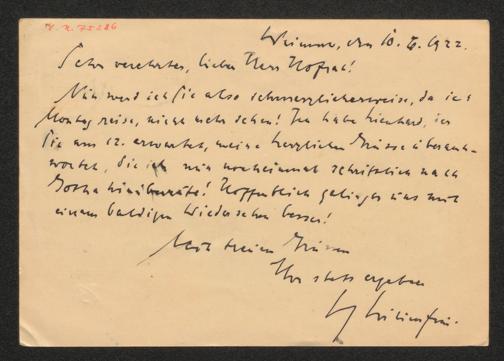 H. N. 75286
Weimar, den 10. 6. 1922.
Sehr verehrter, lieber Herr Hofrat!
Nun werd ich Sie also schmerzlicherweise, da ich
Montag reise, nicht mehr sehen! Ich habe Lienhard, der
Sie am 12. erwartet, meine herzlichen Grüsse überant-
wortet, die ich nun nocheinmal schriftlich nach
Gotha hinüber! Hoffentlich gelingt es uns mit
einem baldigen Wiedersehen besser!
Mit treuen Grüssen
Ihr stets ergebener
Lilienfein.